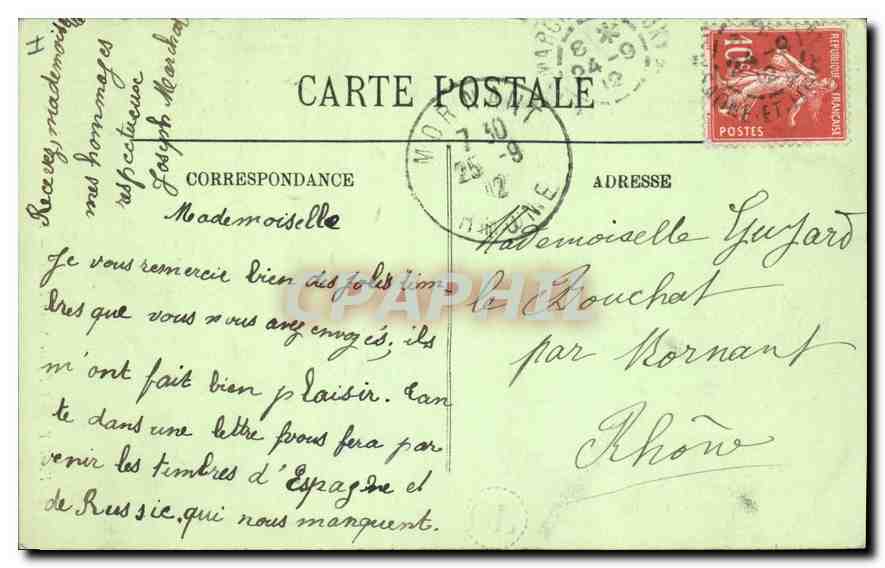 II
Recevez, mademoiselle
mes hommages
respectueuse
Joseph Marchal
CARTE POSTALE
CORRESPONDANCE
ADRESSE
MORNANT
7 30
25 -9
12
RHONE
8 *
24 -9
12
10c
REPUBLIQUE FRANCAISE
POSTES
Mademoiselle
Je vous remercie bien des jolis tim-
bres que vous nous avez envoyés, ils
m'ont fait bien plaisir. Tan
te dans une lettre vous fera par
venir les timbres d'Espagne et
de Russie, qui nous manquent.
Mademoiselle Guyard
le Bouchat
par Mornant
Rhône
L
CPAPHIL